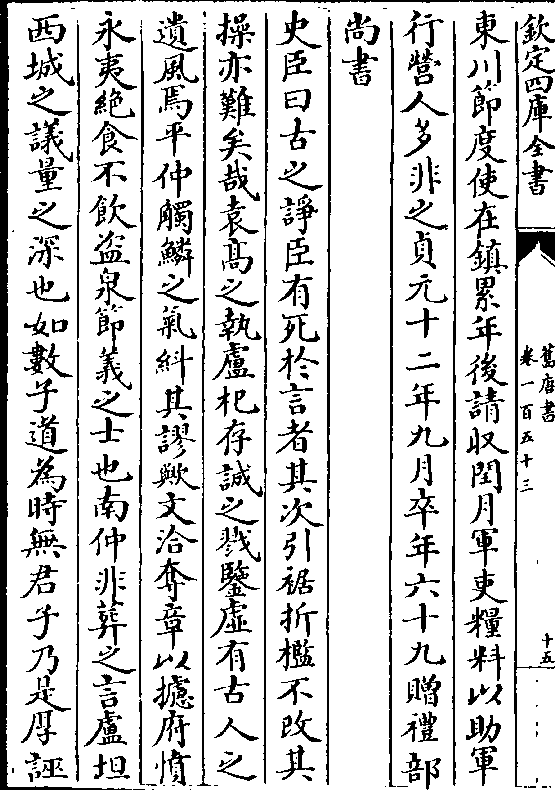 欽定四庫全書
舊唐書
卷一百五十三
十五
東川節度使在鎮累年後請収閏月軍吏糧料以助軍
行營人多非之貞元十二年九月卒年六十九贈禮部
尚書
史臣曰古之諍臣有死於言者其次引裾折檻不改其
操亦難矣哉袁髙之執盧杞存誠之戮鑒虛有古人之
遺風焉平仲觸鱗之氣紏其謬歟文洽奪章以攄府憤
永夷絶食不飲盗泉節義之士也南仲非葬之言盧坦
西城之議量之深也如數子道為時無君子乃是厚誣